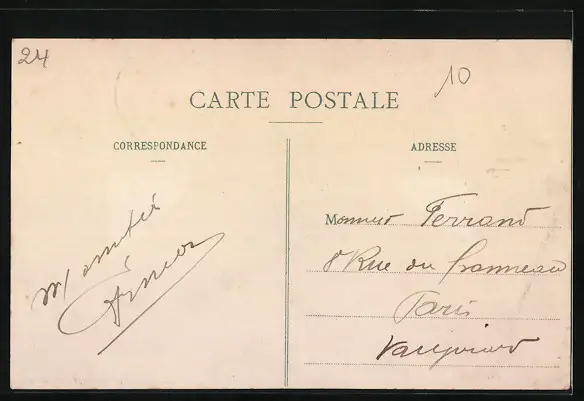 24
10
CARTE POSTALE
CORRESPONDANCE
ADRESSE
Monsieur Ferrand
8 Rue du
Paris
Vaugirard